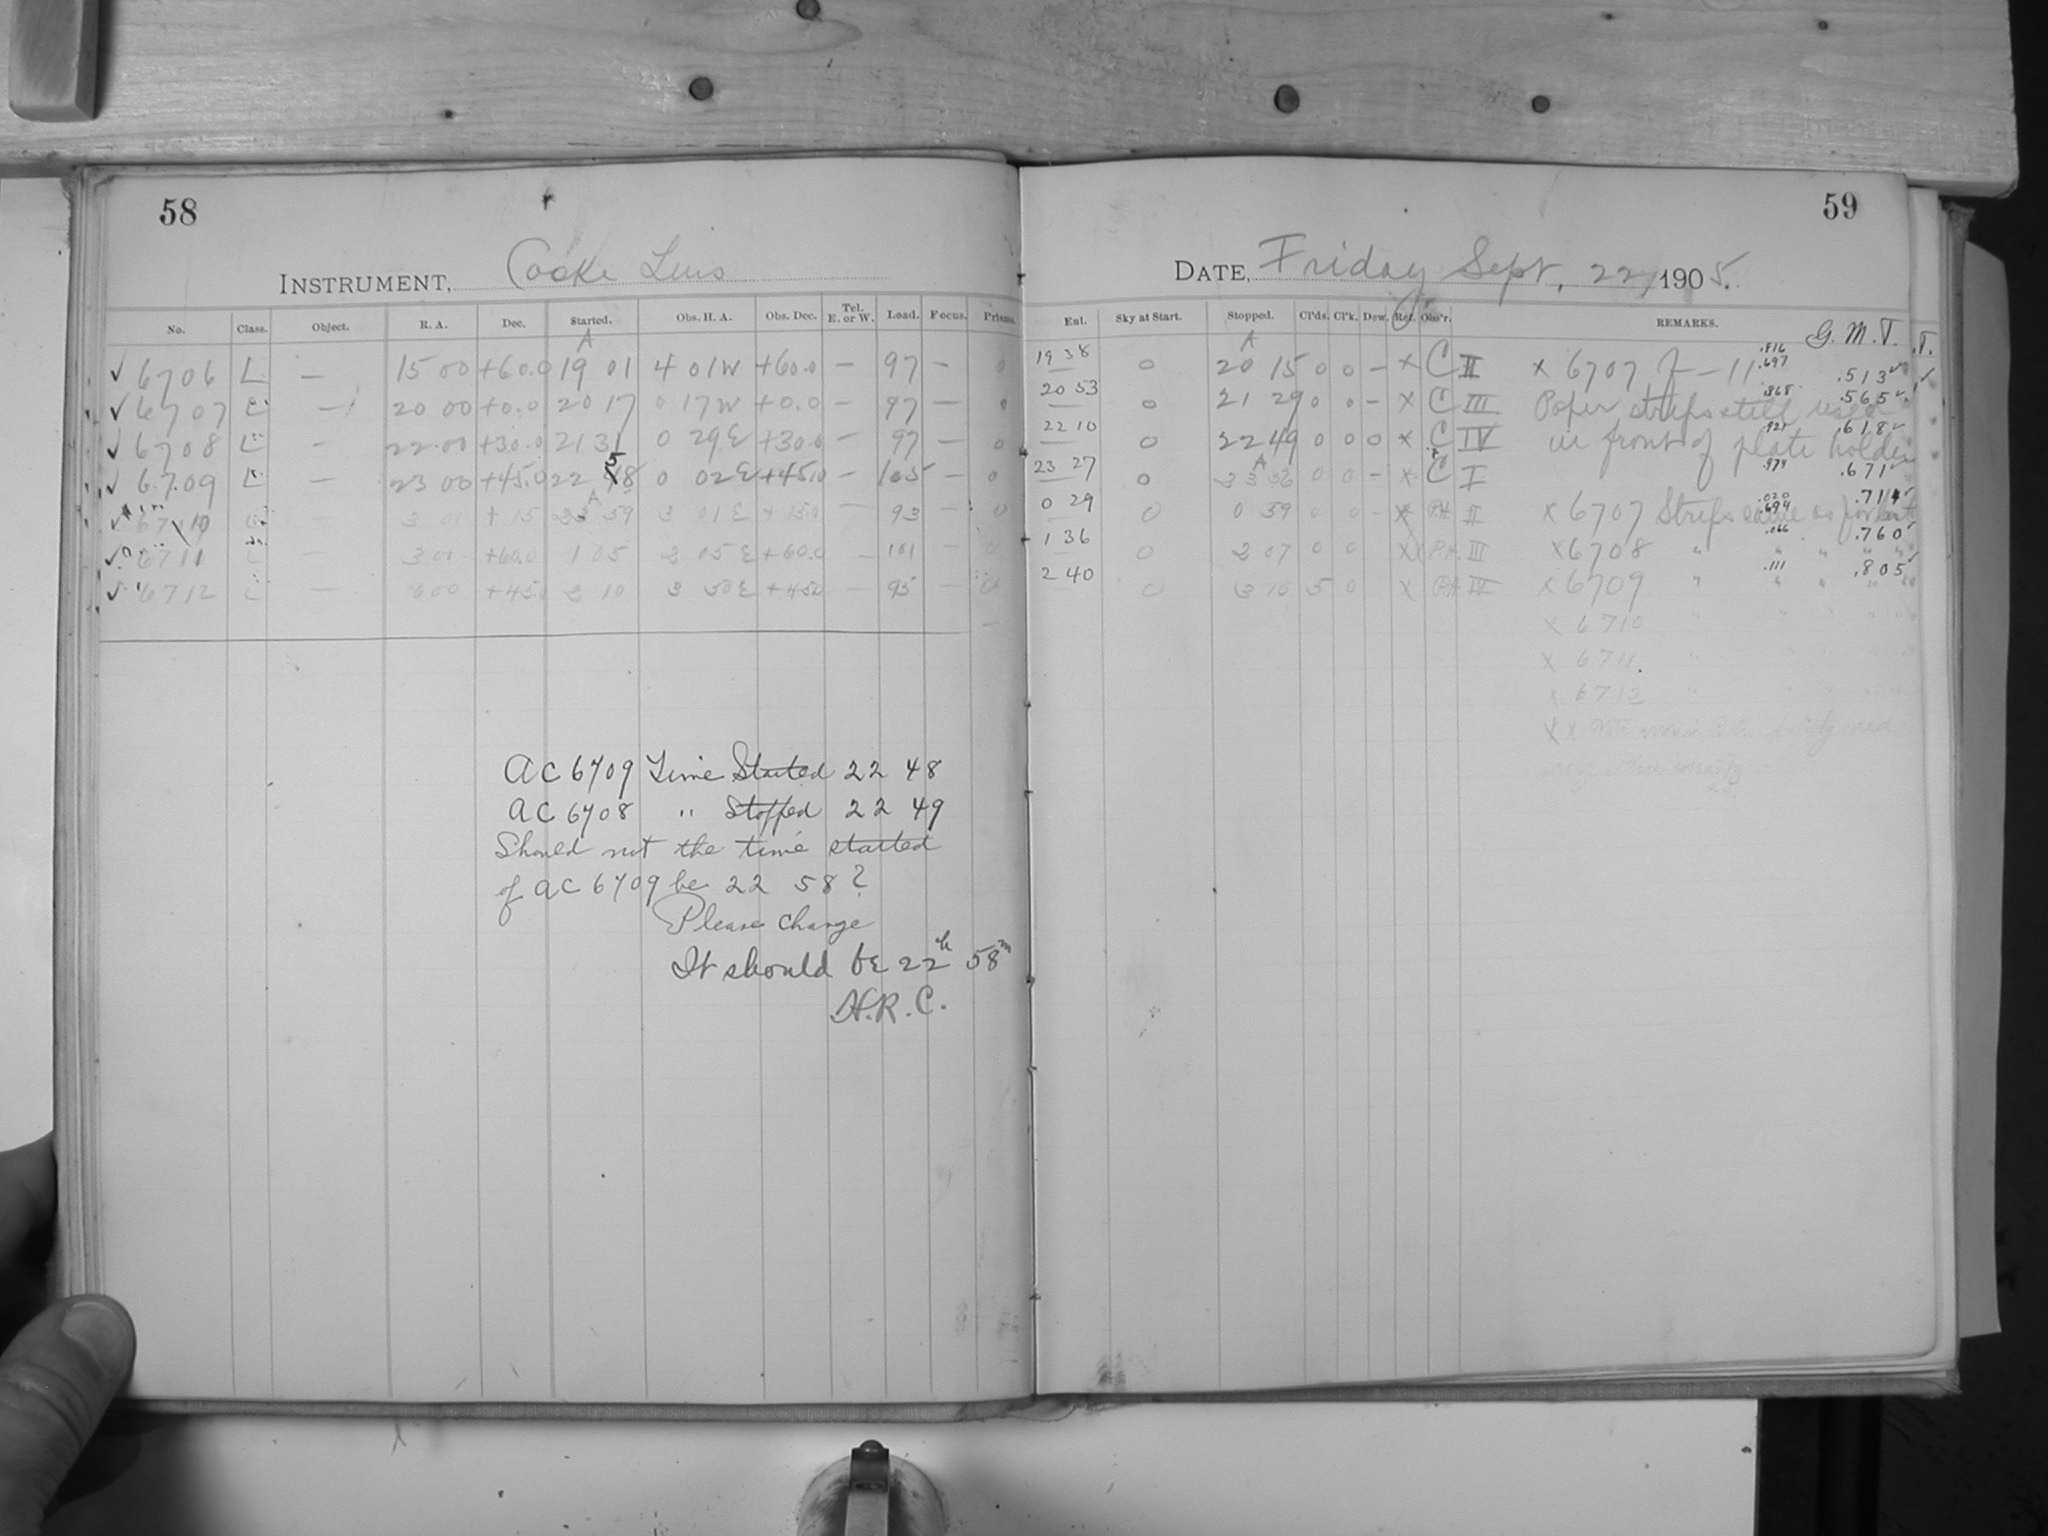 58
INSTRUMENT, Cooke Lens
No. Class. Object. R. A. Dec. Started. Obs. H. A. Obs. Dec. Tel. E. or W. Load. Focus. Prisms.
✓ 6706 L — 15 00 +60.0 19 01 4 01W +60.0 — 97 — 0
✓ 6707 L — 20 00 +0.0 20 17 0 17W +0.0 — 97 —
✓ 6708 L — 22 00 +30.0 21 31 0 29E +30.0 — 97 — 0
✓ 6709 L — 23 00 +45.0 22 58 0 02E +45.0 — 105 — 0
✓ 6710 — 3 01 +15 23 59 3 01E +15.0 — 93 — 0
✓ 6711 — 3 01 +60.0 1 05 2 05E +60.0 — 101 — 0
✓ 6712 — 600 +45.0 2 10 3 50E +45.0 — 95 — 0
AC 6709 Time Started 22 48
AC 6708 " Stopped 22 49
Should not the time started
of AC 6709 be 22 58?
Please change
It should be 22h 58m
H.R.C.
59
DATE, Friday Sept. 22, 1905.
Enl. Sky at Start. Stopped. Cl'ds. Cl'k. Dew. Ret. Obs'r. REMARKS. G.M.T.
19 38 0 20 15 0 0 — x C II x 6707 J — 11 .816 .697 .513 ✓
20 53 0 21 29 0 0 — x C III Paper strips still used .868 .565 ✓
22 10 0 22 49 0 0 0 x C IV in front of plate holder .921 .618 ✓
23 27 0 23 56 0 0 — x C I .974 .671 ✓
0 29 0 0 59 0 0 — x P.H. II x 6707 Strips same as for last .020 .694 .714 ✓
1 36 0 2 07 0 0 x P.H. III x 6708 " " " " .066 .760 ✓
2 40 0 3 10 5 0 x P.H. IV x 6709 " " " " .111 .805 ✓
x 6710 "
x 6711. "
x 6712 "